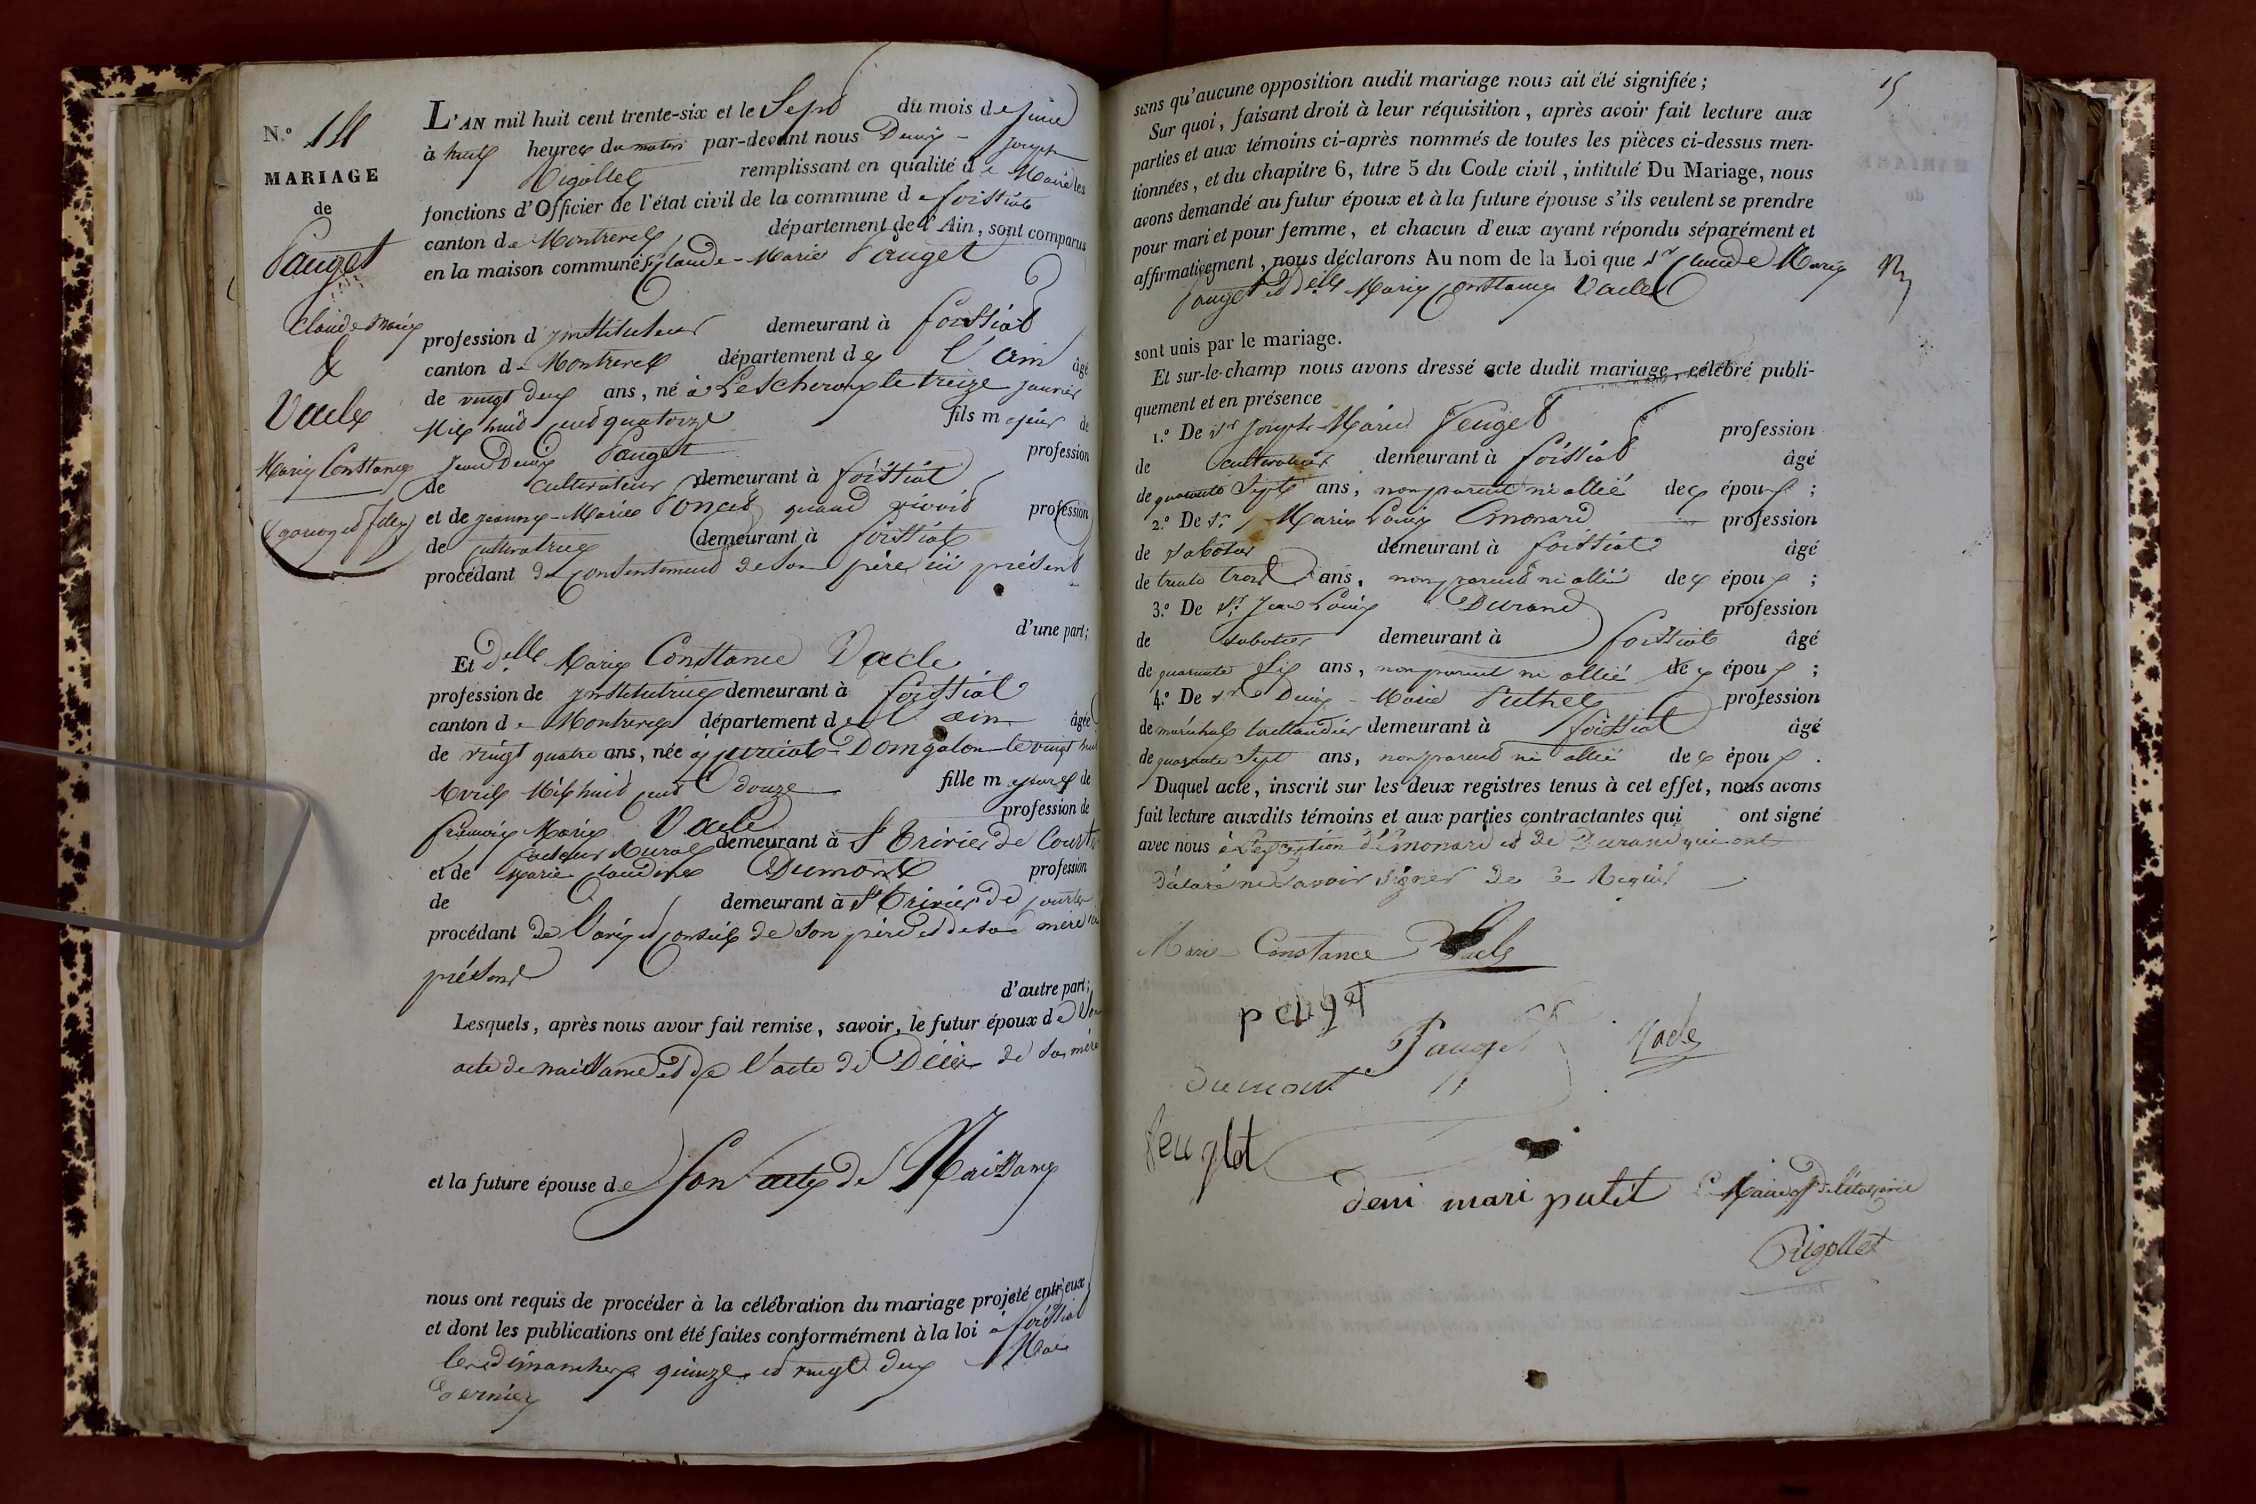 N.º 14
MARIAGE
de
Pauget
Claude Marie
&
Vacle
Marie Constance
(garçon et fille)
L'AN mil huit cent trente-six et le Sept du mois de juin
à huit heures du matin par-devant nous Denis - Joseph
Rigollet remplissant en qualité de Maire les
fonctions d'Officier de l'état civil de la commune de foissiat
canton de Montrevel département de l'Ain, sont comparus
en la maison commune Sr Claude-Marie Pauget
profession d'instituteur demeurant à foissiat
canton de Montrevel département de l'ain âgé
de vingt deux ans, né à Lescheroux le treize janvier
Mil huit cent quatorze fils majeur de
Jean Denis Pauget profession
de cultivateur demeurant à foissiat
et de jeanne-Marie Poncet quand vivoit profession
de cultivatrice demeurant à foissiat
procédant du consentement de son père ici présent
d'une part;
Et delle Marie Constance Vacle
profession de institutrice demeurant à foissiat
canton de Montrevel département de l'ain âgée
de vingt quatre ans, née à jurciat Domgalon le vingt huit
Avril Mil huit cent douze fille majeure de
françois Marie Vacle profession de
facteur Rural demeurant à St Trivier de Courtes
et de Marie Claudine Dumont profession
de demeurant à St Trivier de courtes
procédant de l'avis et conseil de son père et de sa mère ici
présent
d'autre part;
Lesquels, après nous avoir fait remise, savoir, le futur époux de son
acte de naissance et de l'acte de Décès de sa mère
et la future épouse de son acte de Naissance
nous ont requis de procéder à la célébration du mariage projeté entr'eux
et dont les publications ont été faites conformément à la loi à foissiat
les dimanches quinze et vingt deux Mai
dernier
15
sans qu'aucune opposition audit mariage nous ait été signifiée;
Sur quoi, faisant droit à leur réquisition, après avoir fait lecture aux
parties et aux témoins ci-après nommés de toutes les pièces ci-dessus men-
tionnées, et du chapitre 6, titre 5 du Code civil, intitulé Du Mariage, nous
avons demandé au futur époux et à la future épouse s'ils veulent se prendre
pour mari et pour femme, et chacun d'eux ayant répondu séparément et
affirmativement, nous déclarons Au nom de la Loi que Sr Claude Marie
Pauget et delle Marie Constance Vacle
sont unis par le mariage.
Et sur-le-champ nous avons dressé acte dudit mariage, célébré publi-
quement et en présence
1.º De Sr Joseph Marie Feuget profession
de cultivateur demeurant à foissiat âgé
de quarante Sept ans, non parent ni allié des époux;
2.º De Sr Marie Louis Emonard profession
de sabotier demeurant à foissiat âgé
de trente trois ans, non parent ni allié des époux;
3.º De Sr Jean Louis Durand profession
de sabotier demeurant à foissiat âgé
de quarante six ans, non parent ni allié des époux;
4.º De Sr Denis - Marie Puthet profession
de maréchal taillandier demeurant à foissiat âgé
de quarante Sept ans, non parent ni allié des époux.
Duquel acte, inscrit sur les deux registres tenus à cet effet, nous avons
fait lecture auxdits témoins et aux parties contractantes qui ont signé
avec nous à l'exception d'émonard et de Durand qui ont
déclaré ne savoir signer de ce Requis
Marie Constance Vacle
peuget
Pauget Vacle
dumont
feuglet
deni mari putet Le Maire off. de l'état civil
Rigollet